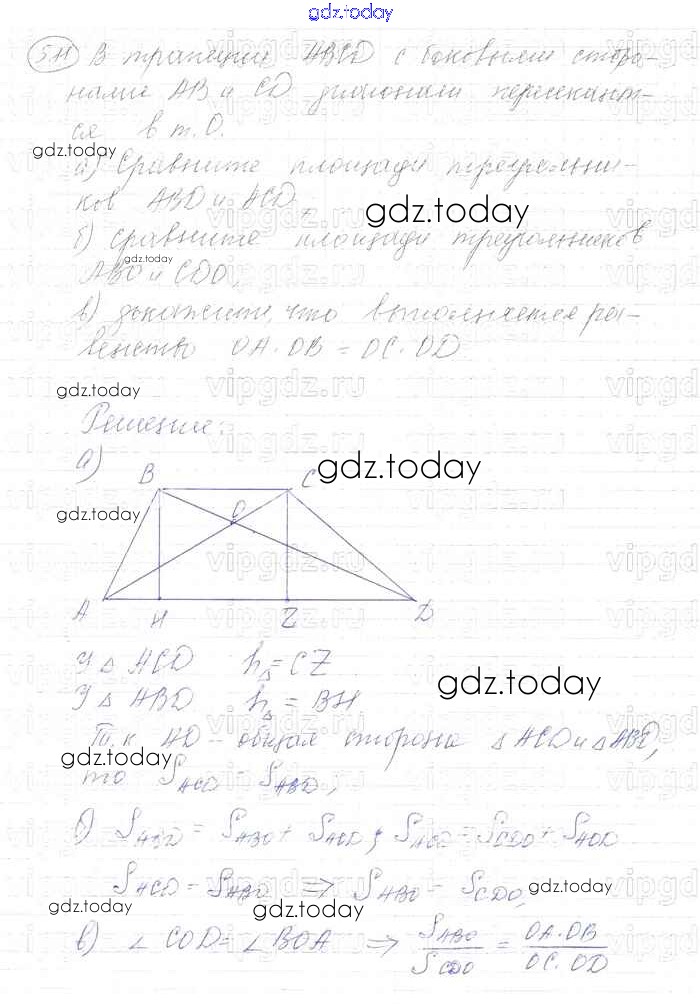 gdz.today
5.11 В трапеции ABCD с боковыми сторо-
нами AB и CD диагонали пересекают-
ся в т. O.
gdz.today
а) Сравните площади треугольни-
ков ABD и ACD,
gdz.today
б) сравните площади треугольников
gdz.today
ABO и CDO,
в) докажите, что выполняется ра-
венство OA·OB = OC·OD
gdz.today
Решение:
а)
gdz.today
B C
gdz.today
O
A H Z D
У △ ACD h△ = CZ
gdz.today
У △ ABD h△ = BH
Т.к AD - общая сторона △ ACD и △ ABD,
gdz.today
то S ACD = S ABD,
б) S ABD = S ABO + S AOD; S ACD = S CDO + S AOD
S ACD = S ABD ⇒ S ABO = S CDO,
gdz.today
gdz.today
gdz.today
в) ∠ COD = ∠ BOA ⇒ S ABO / S CDO = OA·OB / OC·OD